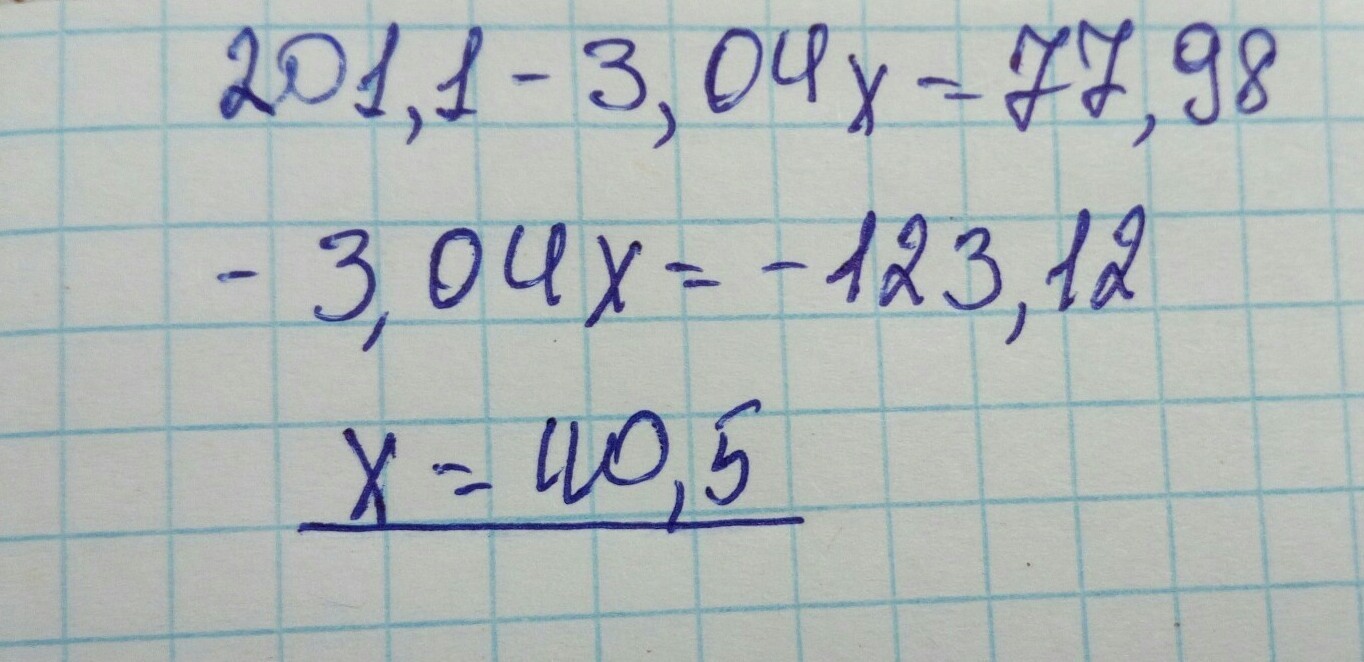 201,1 - 3,04x = 77,98
- 3,04x = - 123,12
x = 40,5